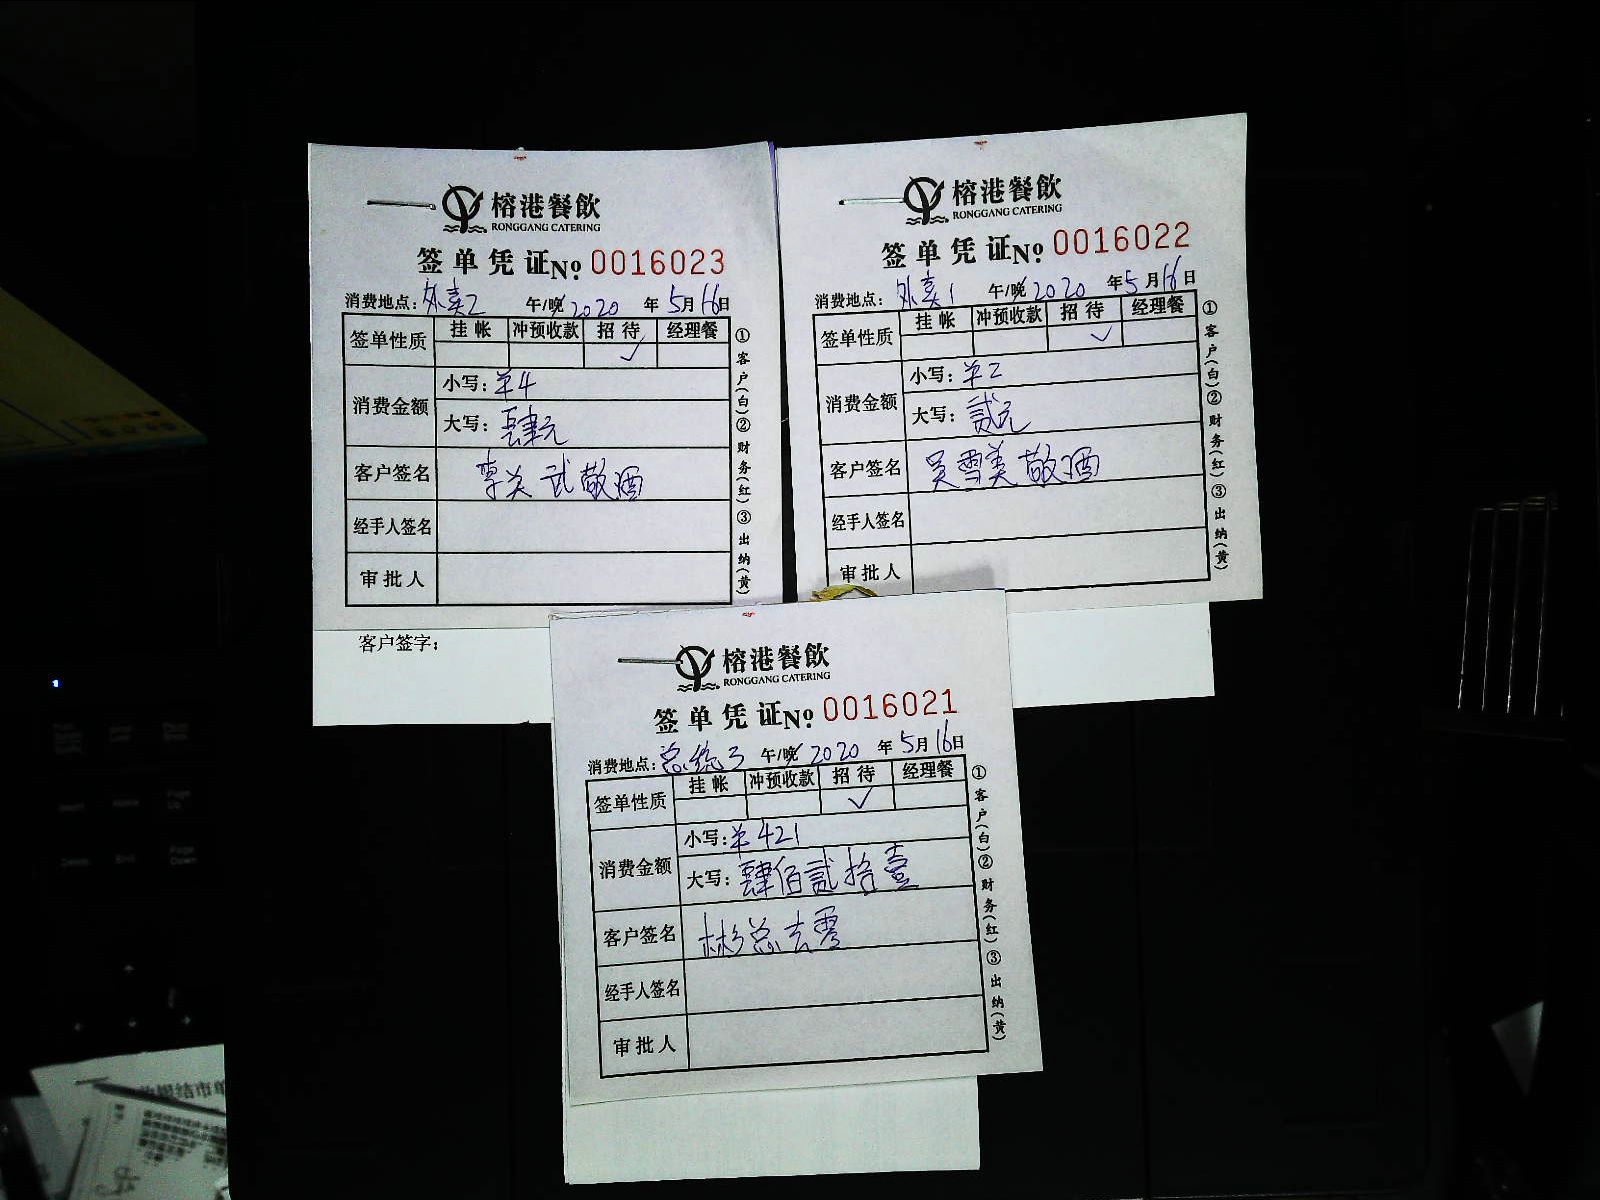 榕港餐飲
RONGGANG CATERING
签单凭证No 0016023
消费地点：外卖2 午/晚 2020年5月16日
签单性质 挂帐 冲预收款 招待 经理餐
✓
消费金额 小写：羊4
大写：肆元
客户签名 李关武敬酒
经手人签名
审批人
①客户(白)②财务(红)③出纳(黄)
客户签字：
榕港餐飲
RONGGANG CATERING
签单凭证No 0016022
消费地点：外卖1 午/晚 2020年5月16日
签单性质 挂帐 冲预收款 招待 经理餐
✓
消费金额 小写：羊2
大写：贰元
客户签名 吴雪美敬酒
经手人签名
审批人
①客户(白)②财务(红)③出纳(黄)
榕港餐飲
RONGGANG CATERING
签单凭证No 0016021
消费地点：总统3 午/晚 2020年5月16日
签单性质 挂帐 冲预收款 招待 经理餐
✓
消费金额 小写：羊421
大写：肆佰贰拾壹
客户签名 彬总去零
经手人签名
审批人
①客户(白)②财务(红)③出纳(黄)